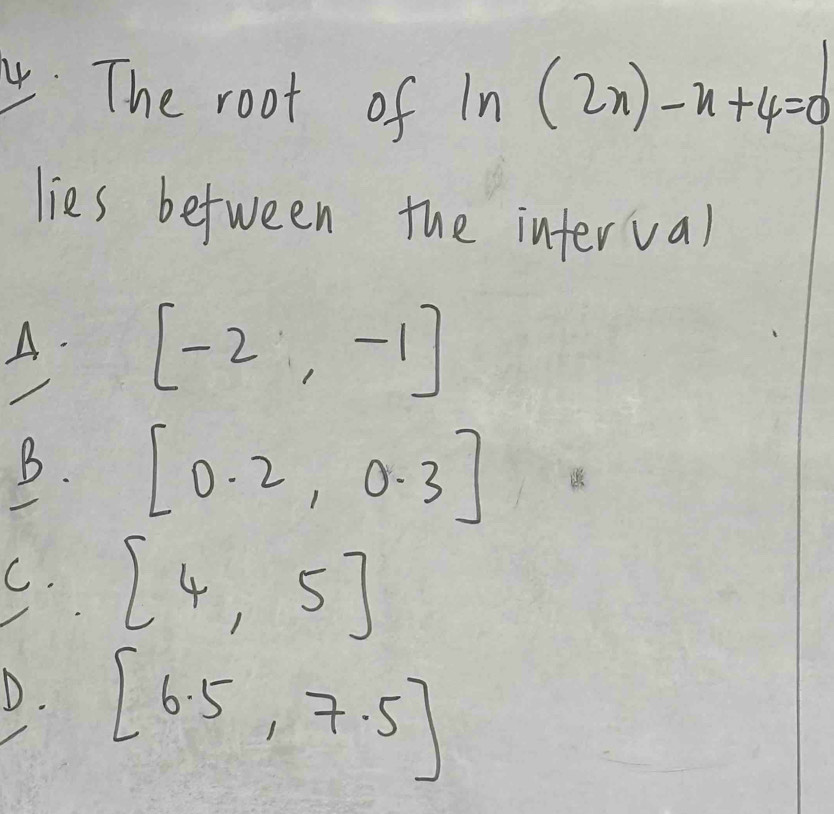 4. The root of ln (2x)-x+4=0
lies between the interval
A. [-2, -1]
B. [0.2, 0.3]
C. [4, 5]
D. [6.5, 7.5]